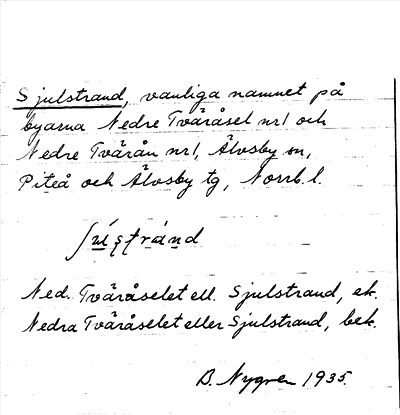 Sjulstrand, vanliga namnet på
byarna Nedre Tväråsel nr1 och
Nedre Tvärån nr1, Älvsby sn,
Piteå och Älvsby tg, Norrb. l.
Ned. Tväråselet ell. Sjulstrand, ek.
Nedra Tväråselet eller Sjulstrand, bek.
B. Nygren 1935.